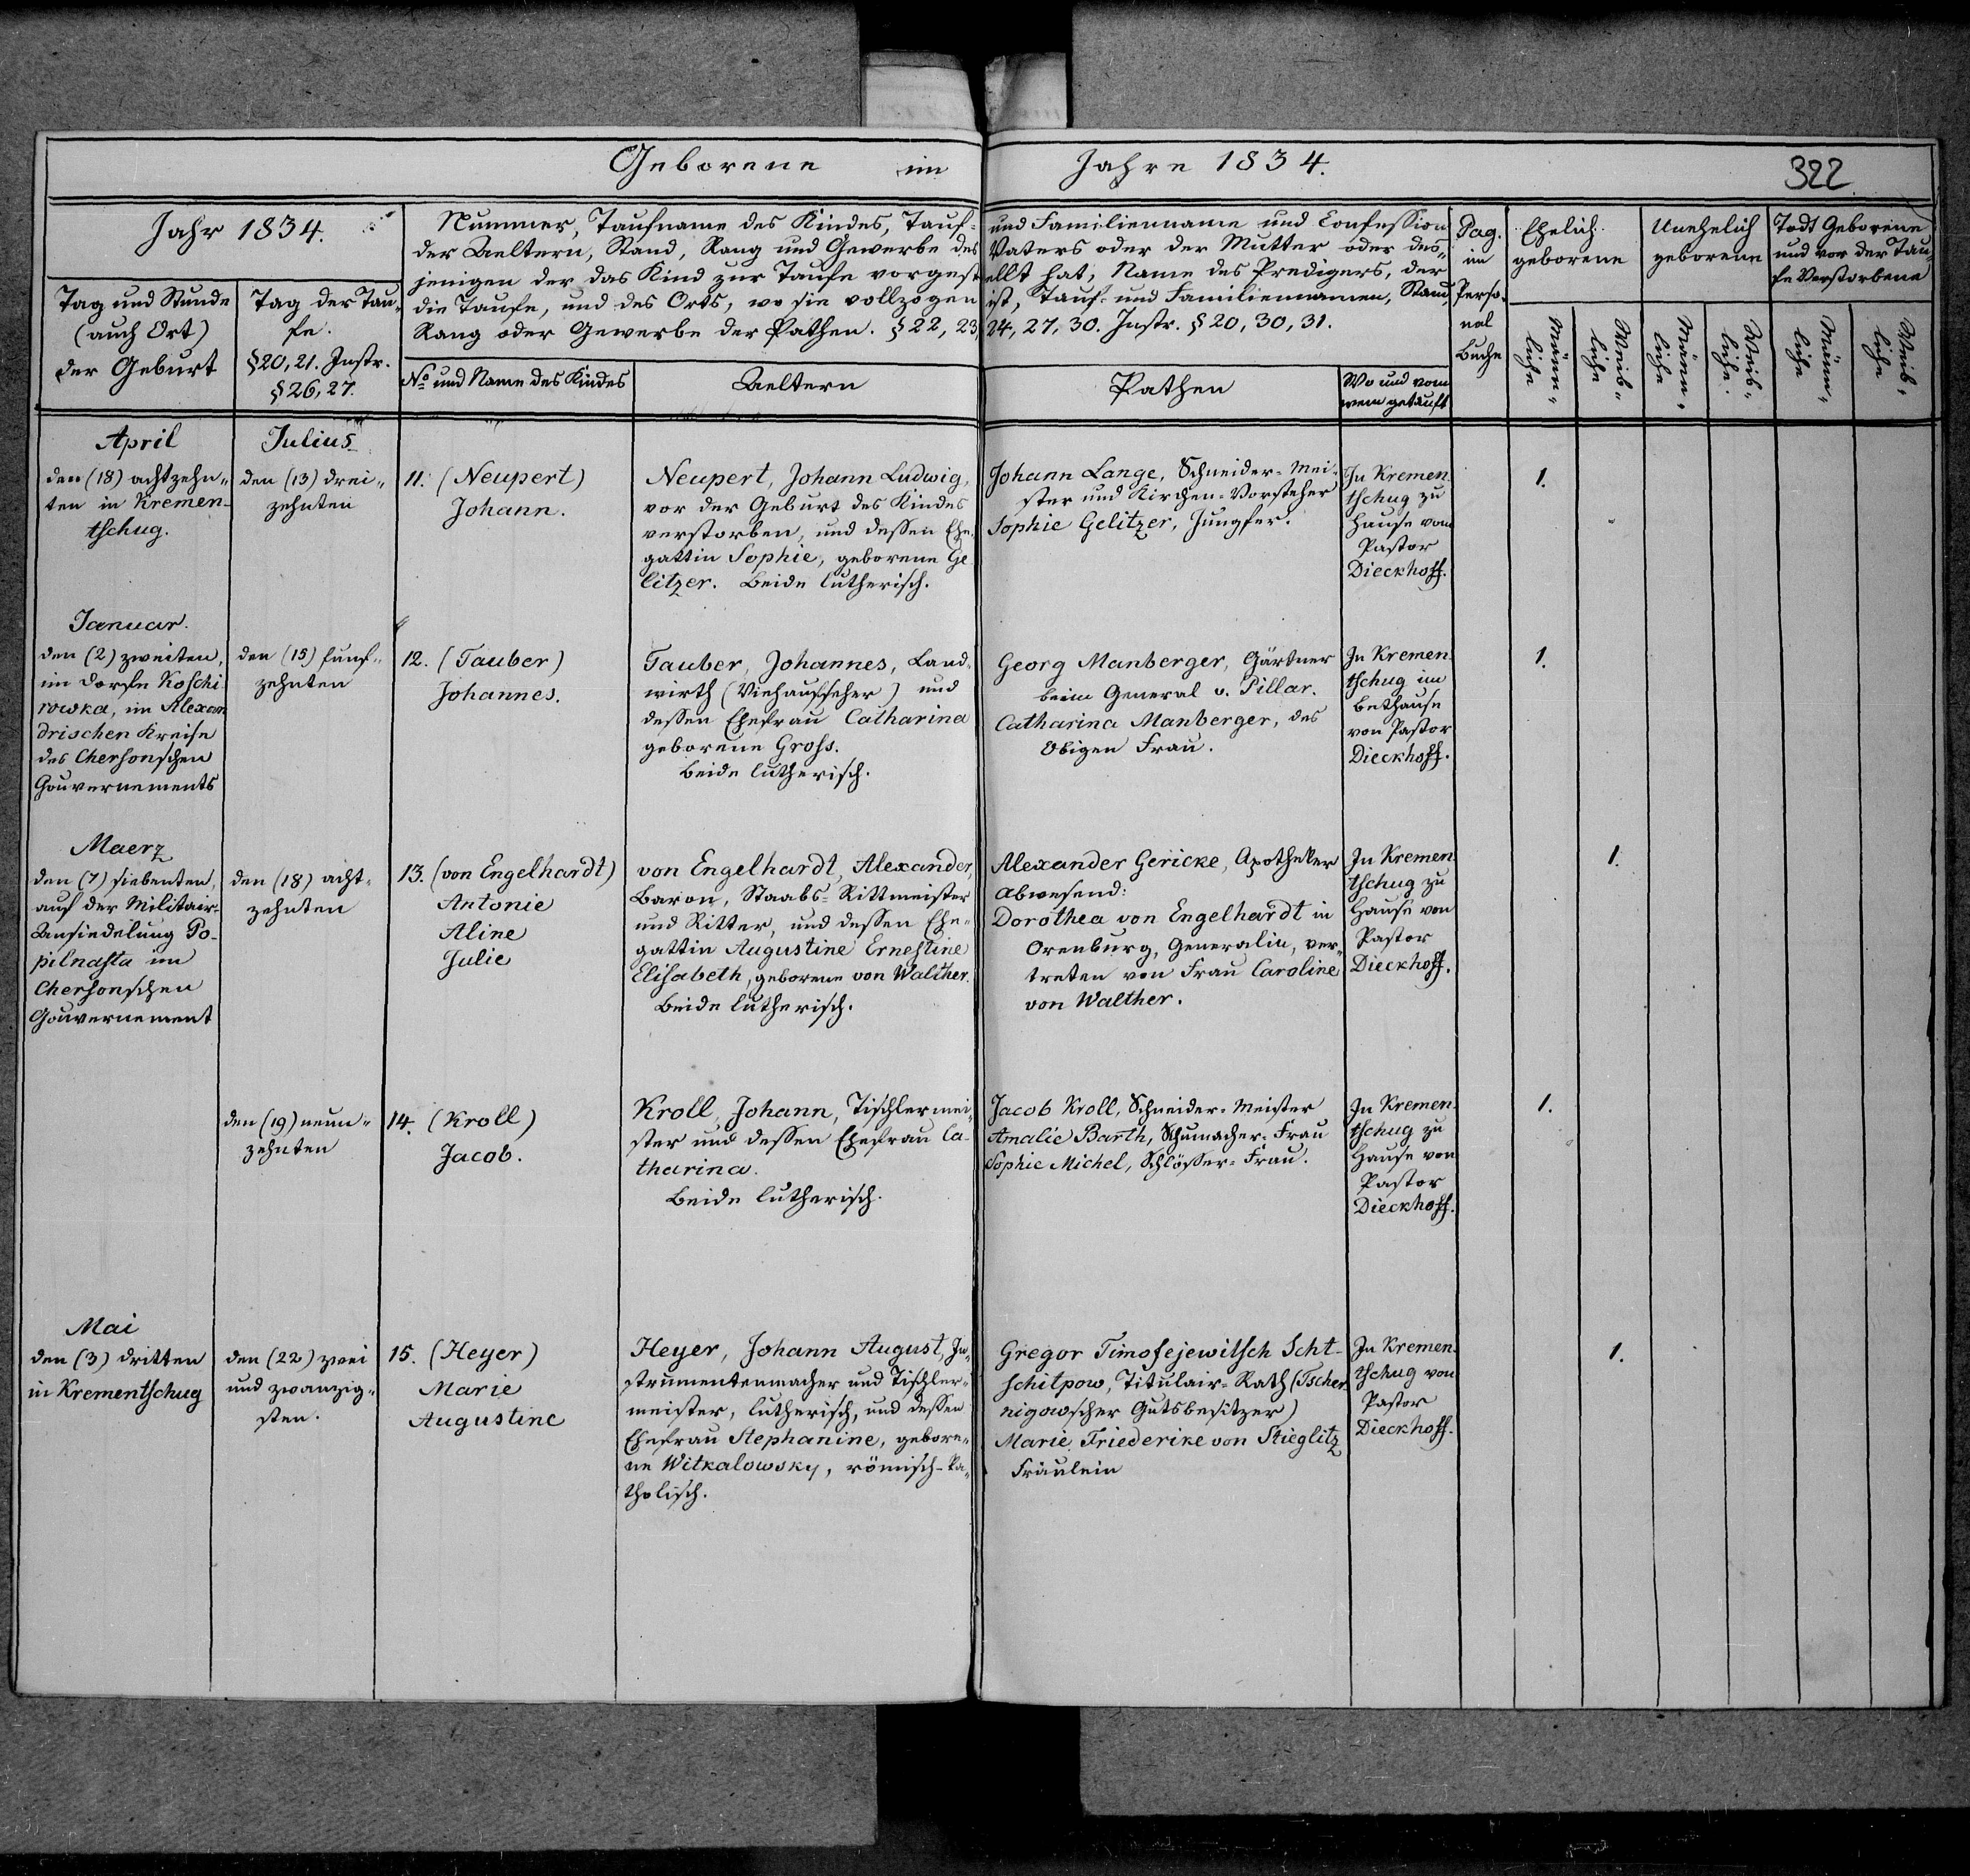 Geborene im Jahre 1834.
322
Jahr 1834.
Tag und Stunde
(auch Ort)
der Geburt
Tag der Tau-
fe.
§20, 21. Instr.
§26, 27.
Nummer, Taufname des Kindes, Tauf- und Familienname und Confession
der Aeltern, Stand, Rang und Gewerbe des Vaters oder der Mutter oder des-
jenigen der das Kind zur Taufe vorgestellt hat, Name des Predigers, der
die Taufe, und des Orts, wo sie vollzogen ist, Tauf- und Familiennamen, Stand,
Rang oder Gewerbe der Pathen. §22, 23, 24, 27, 30. Instr. §20, 30, 31.
No und Name des Kindes
Aeltern
Pathen
Wo und vom
wem getauft
Pag.
im
Perso-
nal
Buche
Ehelich
geborene
Unehelich
geborene
Todt Geborene
und vor der Tau-
fe Verstorbene
Männ-
liche
Weib-
liche
Männ-
liche
Weib-
liche.
Männ-
liche
Weib-
liche
April
den (18) achtzehn-
ten in Kremen-
tschug.
Julius
den (13) drei-
zehnten
11. (Neupert)
Johann.
Neupert, Johann Ludwig,
vor der Geburt des Kindes
verstorben, und dessen Ehe-
gattin Sophie, geborene Ge-
litzer. Beide lutherisch.
Johann Lange, Schneider-Mei-
ster und Kirchen-Vorsteher
Sophie Gelitzer, Jungfer.
In Kremen-
tschug zu
Hause vom
Pastor
Dieckhoff.
1.
Januar.
den (2) zweiten,
im Dorfe Koschi-
rowka, im Alexan-
drischen Kreise
des Chersonschen
Gouvernements
den (15) funf-
zehnten
12. (Tauber)
Johannes.
Tauber, Johannes, Land-
wirth (Viehaufseher) und
dessen Ehefrau Catharina
geborene Gross.
Beide lutherisch.
Georg Manberger, Gärtner
beim General v. Pillar.
Catharina Manberger, des
Obigen Frau.
In Kremen-
tschug im
Bethause
von Pastor
Dieckhoff.
1.
Maerz
den (7) siebenten,
auf der Militair-
Ansiedelung Po-
pilnasta im
Chersonschen
Gouvernement
den (18) acht-
zehnten
13. (von Engelhardt)
Antonie
Aline
Julie
von Engelhardt, Alexander,
Baron, Staabs-Rittmeister
und Ritter, und dessen Ehe-
gattin Augustine Ernestine
Elisabeth, geborene von Walther.
Beide lutherisch.
Alexander Gericke, Apotheker
Abwesend:
Dorothea von Engelhardt in
Orenburg, Generalin, ver-
treten von Frau Caroline
von Walther.
In Kremen-
tschug zu
Hause von
Pastor
Dieckhoff.
1.
den (19) neun-
zehnten
14. (Kroll)
Jacob.
Kroll, Johann, Tischlermei-
ster und dessen Ehefrau Ca-
tharina.
Beide lutherisch.
Jacob Kroll, Schneider-Meister
Amalie Barth, Schumacher-Frau
Sophie Michel, Schlösser-Frau.
In Kremen-
tschug zu
Hause von
Pastor
Dieckhoff.
1.
Mai
den (3) dritten
in Krementschug
den (22) zwei
und zwanzig-
sten.
15. (Heyer)
Marie
Augustine
Heyer, Johann August, In-
strumentenmacher und Tischler-
meister, lutherisch, und dessen
Ehefrau Stephanine, gebore-
ne Witkalowsky, römisch-ka-
tholisch.
Gregor Timofejewitsch Scht-
schitpow, Titulair-Rath (Tscher-
nigowscher Gutsbesitzer)
Marie Friederike von Stieglitz
Fräulein
In Kremen-
tschug von
Pastor
Dieckhoff.
1.